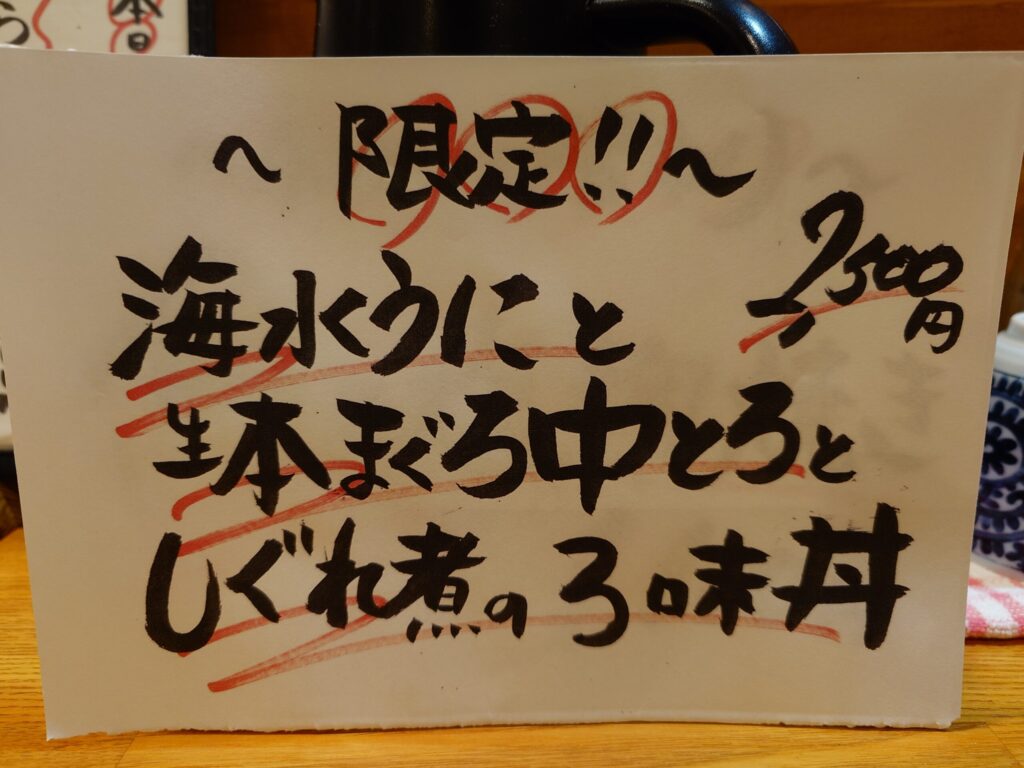 本日
う
～限定!!～
2,500円
海水うにと
生本まぐろ中とろと
しぐれ煮の3味丼